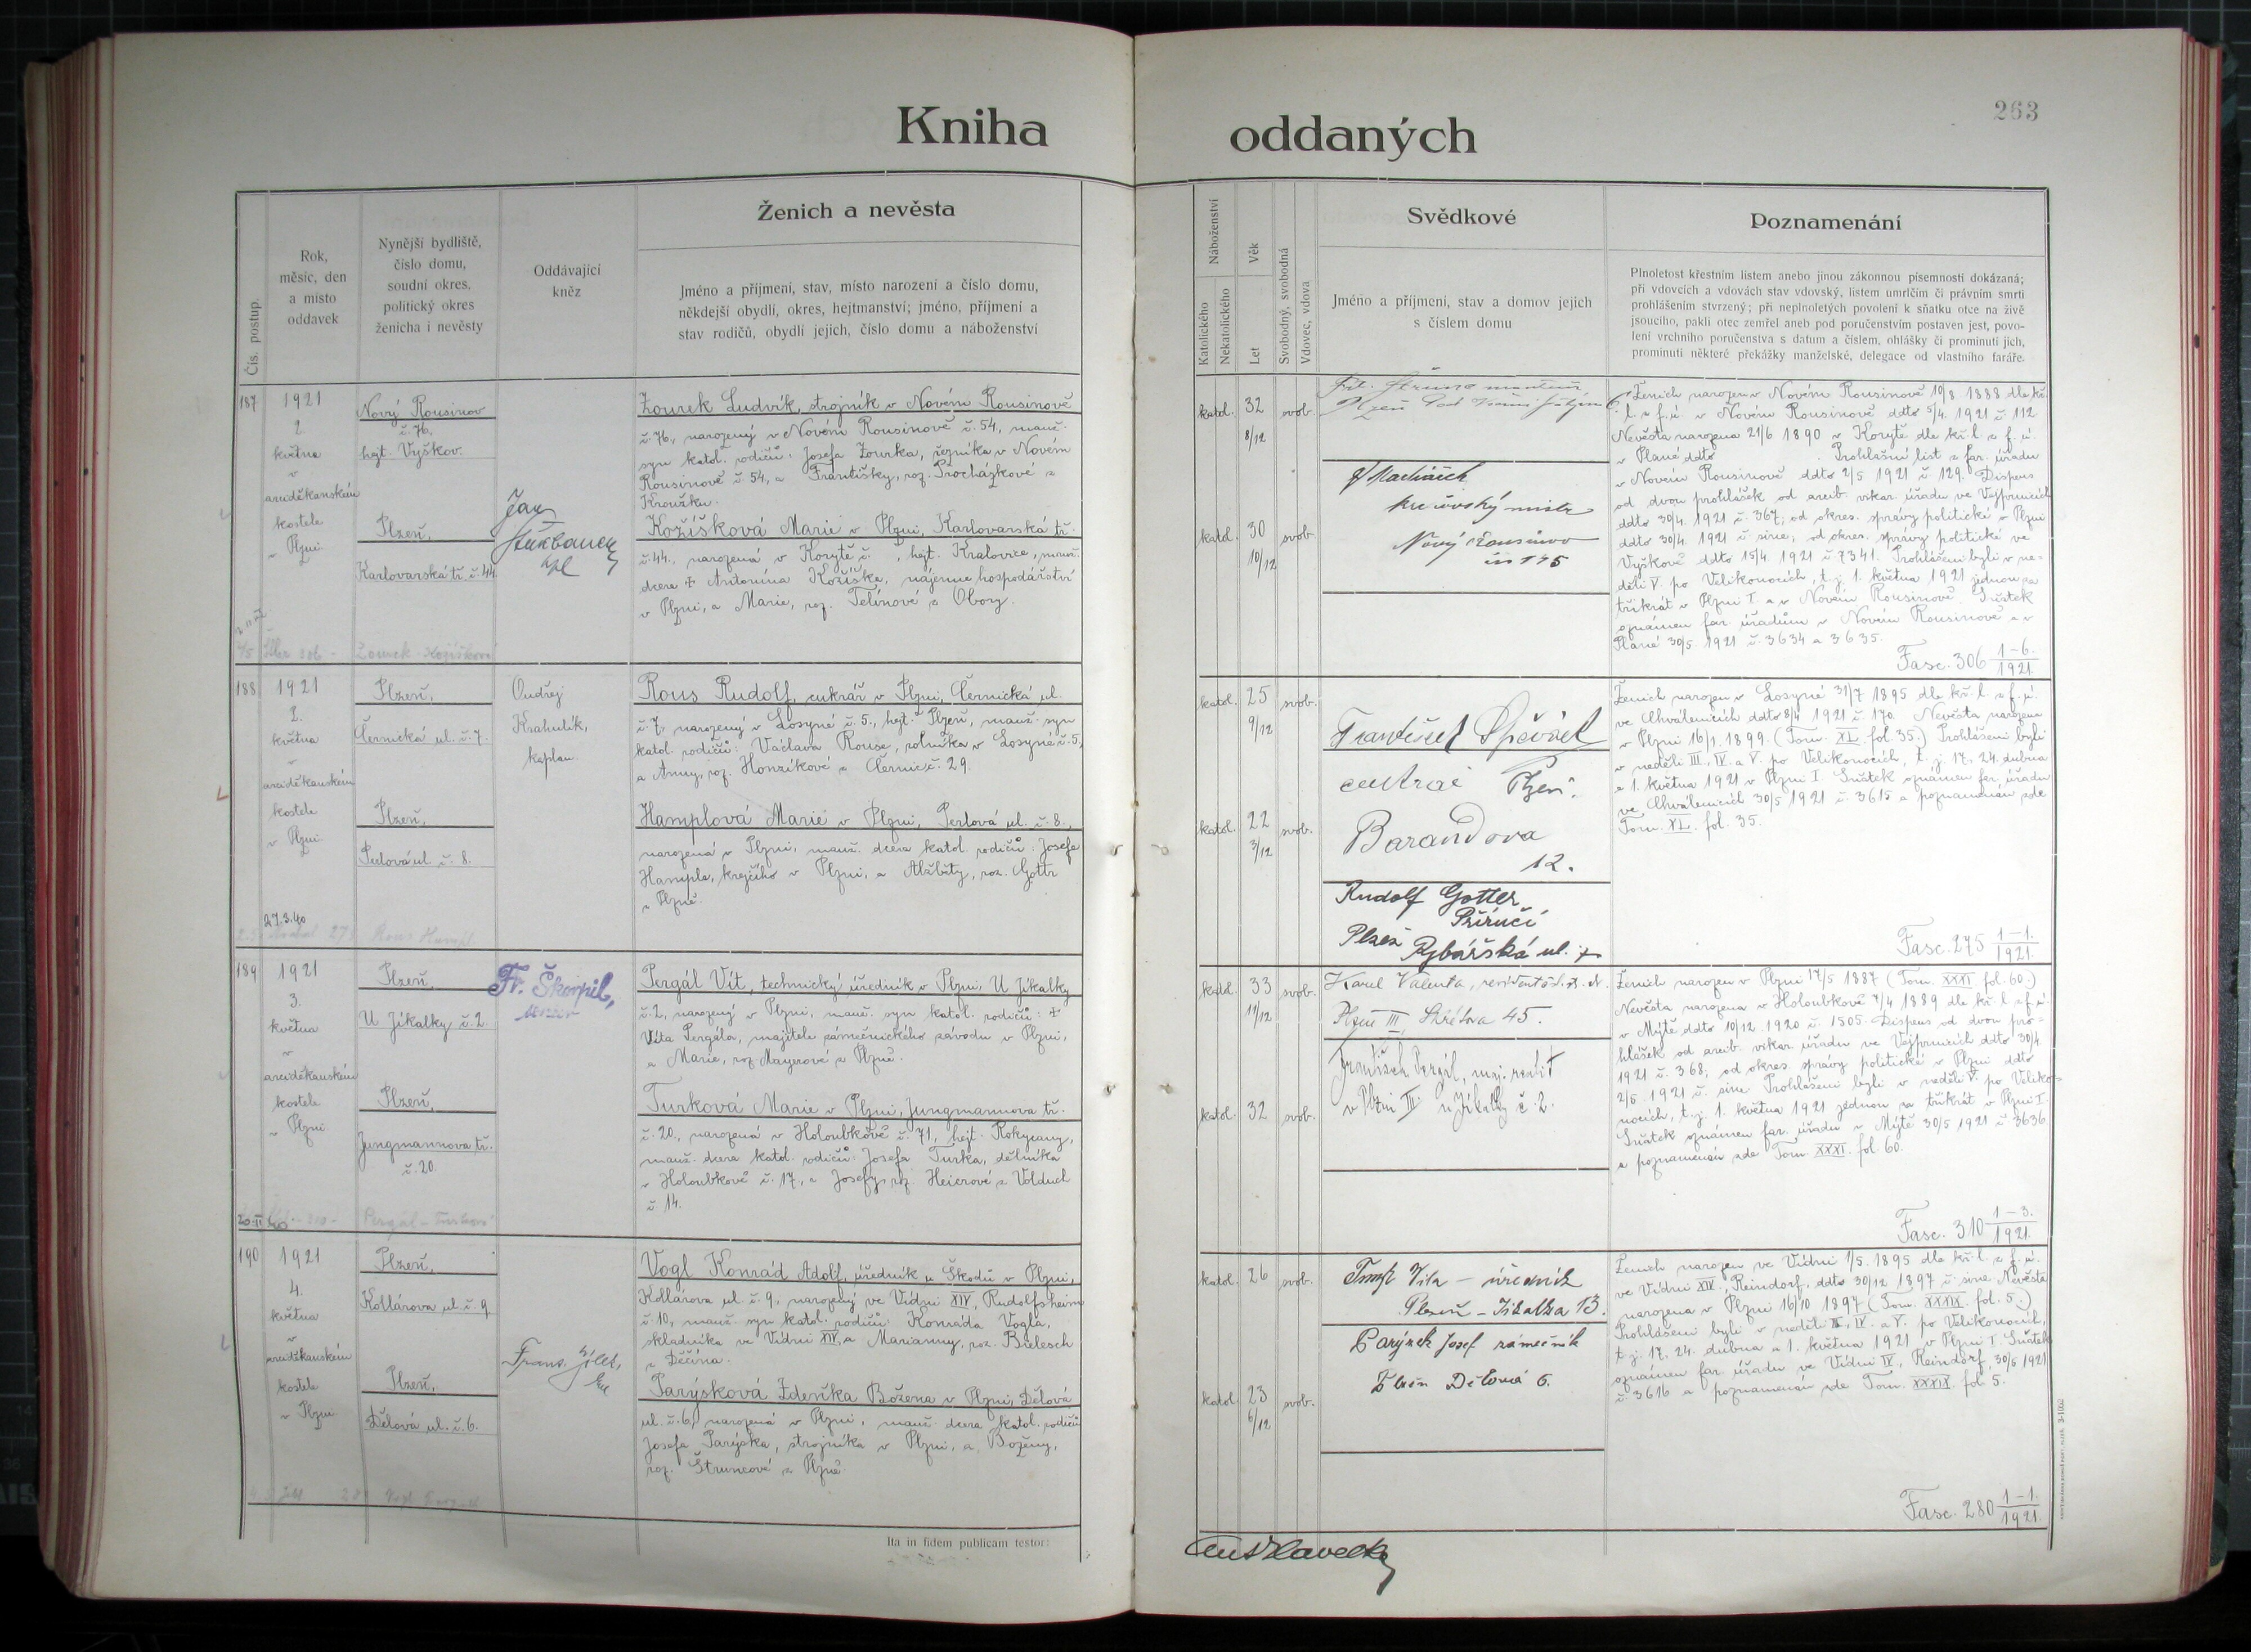 Kniha
oddaných
263
Čís. postup.
Rok,
měsíc, den
a místo
oddavek
Nynější bydliště,
číslo domu,
soudní okres,
politický okres
ženicha i nevěsty
Oddávající
kněz
Ženich a nevěsta
Jméno a příjmení, stav, místo narození a číslo domu,
někdejší obydlí, okres, hejtmanství; jméno, příjmení a
stav rodičů, obydlí jejich, číslo domu a náboženství
Náboženství
Katolického
Nekatolického
Věk
Let
Svobodný, svobodná
Vdovec, vdova
Svědkové
Jméno a příjmení, stav a domov jejich
s číslem domu
Poznamenání
Plnoletost křestním listem anebo jinou zákonnou písemností dokázaná;
při vdovcích a vdovách stav vdovský, listem úmrtčím či právním smrti
prohlášením stvrzený; při neplnoletých povolení k sňatku otce na živě
jsoucího, pakli otec zemřel aneb pod poručenstvím postaven jest, povo-
lení vrchního poručenstva s datum a číslem, ohlášky či prominutí jich,
prominutí některé překážky manželské, delegace od vlastního faráře.
187
1921
2.
května
v
arciděkanském
kostele
v Plzni
Nový Rousinov
č. 76,
hejt. Vyškov.
Plzeň,
Karlovarská tř. č. 44.
Jan
Zourek Ludvík, strojník v Novém Rousinově
č. 76, narozený v Novém Rousinově č. 54, manž.
syn katol. rodičů: Josefa Zourka, řezníka v Novém
Rousinově č. 54, a Františky, roz. Procházkové z
Kroužku.
Kožíšková Marie v Plzni, Karlovarská tř.
č. 44, narozená v Korytě č. , hejt. Kralovice, manž.
dcera † Antonína Kožíška, nájemce hospodářství
v Plzni, a Marie, roz. Telínové z Obory.
katol. 32 8/12 svob.
katol. 30 10/12 svob.
Macháček
mistr
Nový Rousinov
175
Ženich narozen v Novém Rousinově 10/8 1888 dle kř.
l. z f. ú. v Novém Rousinově ddto 5/4 1921 č. 112
Nevěsta narozena 21/6 1890 v Korytě dle kř. l. z f. ú.
v Plané ddto . Prohlášní list z far. úřadu
v Novém Rousinově ddto 2/5 1921 č. 129. Dispens
od dvou prohlášek od arcib. vikar. úřadu ve Vejprnicích
ddto 30/4 1921 č. 367; od okres. správy politické v Plzni
ddto 30/4 1921 č. sine; od okres. správy politické ve
Vyškově ddto 15/4 1921 č. 7341. Prohlášeni byli v ne-
děli V. po Velikonocích, t. j. 1. května 1921 jednou za
třikrát v Plzni I. a v Novém Rousinově. Sňatek
oznámen far. úřadům v Novém Rousinově a v
Plané 30/5 1921 č. 3634 a 3635.
Fasc. 306 1–6./1921.
188
1921
2.
května
v
arciděkanském
kostele
v Plzni
Plzeň,
Černická ul. č. 7.
Plzeň,
Perlová ul. č. 8.
27.3.40
Ondřej
Krahulík,
kaplan.
Rous Rudolf, cukrář v Plzni, Černická ul.
č. 7, narozený v Losyné č. 5, hejt. Plzeň, manž. syn
katol. rodičů: Václava Rouse, rolníka v Losyné č. 5,
a Anny, roz. Honzíkové z Černic č. 29.
Hamplová Marie v Plzni, Perlová ul. č. 8.,
narozená v Plzni, manž. dcera katol. rodičů: Josefa
Hampla, krejčího v Plzni, a Alžběty, roz. Gottr
z Plzně.
katol. 25 9/12 svob.
katol. 22 3/12 svob.
František
Plzeň.
Barandova
12.
Rudolf Gotter
Příručí
Plzeň Rybářská ul. 7
Ženich narozen v Losyné 31/7 1895 dle kř. l. z f. ú.
ve Chválenicích ddto 8/4 1921 č. 170. Nevěsta narozena
v Plzni 16/1. 1899. (Tom. XL. fol. 35.) Prohlášeni byli
v neděli III., IV. a V. po Velikonocích, t. j. 17., 24. dubna
a 1. května 1921 v Plzni I. Sňatek oznámen far. úřadu
ve Chválenicích 30/5 1921 č. 3615 a poznamenán zde
Tom. XL. fol. 35.
Fasc. 275 1–1./1921.
189
1921
3.
května
v
arciděkanském
kostele
v Plzni
Plzeň,
U Jíkalky č. 2.
Plzeň,
Jungmannova tř.
č. 20.
Fr. Škorpil,
Pergál Vít, technický úředník v Plzni, U Jíkalky
č. 2, narozený v Plzni, manž. syn katol. rodičů: †
Víta Pergála, majitele zámečnického závodu v Plzni,
a Marie, roz. Mayerové z Plzně.
Turková Marie v Plzni, Jungmannova tř.
č. 20., narozená v Holoubkově č. 71, hejt. Rokycany,
manž. dcera katol. rodičů: Josefa Turka, dělníka
v Holoubkově č. 17, a Josefy, roz. Heierové z Volduch
č. 14.
katol. 33 11/12 svob.
katol. 32 svob.
Karel Valenta,
Plzeň III, 45.
František Pergál, maj. realit
v Plzni III. u Jíkalky č. 2.
Ženich narozen v Plzni 17/5 1887 (Tom. XXXI fol. 60.)
Nevěsta narozena v Holoubkově 7/4 1889 dle kř. l. z f. ú.
v Mýtě ddto 10/12 1920 č. 1505. Dispens od dvou pro-
hlášek od arcib. vikar. úřadu ve Vejprnicích ddto 30/4.
1921 č. 368; od okres. správy politické v Plzni ddto
2/5 1921 č. sine. Prohlášeni byli v neděli V. po Veliko-
nocích, t. j. 1. května 1921 jednou za třikrát v Plzni I.
Sňatek oznámen far. úřadu v Mýtě 30/5 1921 č. 3636
a poznamenán zde Tom. XXXI. fol. 60.
Fasc. 310 1–3./1921.
190
1921
4.
května
v
arciděkanském
kostele
v Plzni
Plzeň,
Kollárova ul. č. 9.
Plzeň,
Dělová ul. č. 6.
Vogl Konrád Adolf, úředník u Škodů v Plzni,
Kollárova ul. č. 9., narozený ve Vídni XIV, Rudolfsheim
č. 10, manž. syn katol. rodičů: Konráda Vogla,
skladníka ve Vídni XIV, a Marianny, roz. Bielesch
z Děčína.
Parýsková Zdeňka Božena v Plzni, Dělová
ul. č. 6, narozená v Plzni, manž. dcera katol. rodičů
Josefa Parýska, strojníka v Plzni, a Boženy,
roz. Štruncové z Plzně.
katol. 26 svob.
katol. 23 6/12 svob.
úředník
Plzeň – Jikalka 13.
Parýzek Josef zámečník
Plzeň Dělová 6.
Ženich narozen ve Vídni 1/5. 1895 dle kř. l. z f. ú.
ve Vídni XIV., Reindorf, ddto 30/12 1897 č. sine. Nevěsta
narozena v Plzni 16/10 1897 (Tom. XXXIX. fol. 5.)
Prohlášeni byli v neděli III., IV. a V. po Velikonocích,
t. j. 17., 24. dubna a 1. května 1921 v Plzni I. Sňatek
oznámen far. úřadu ve Vídni IV, Reindorf, 30/5 1921
č. 3616 a poznamenán zde Tom. XXXIX. fol. 5.
Fasc. 280 1–1./1921.
Ita in fidem publicam testor: